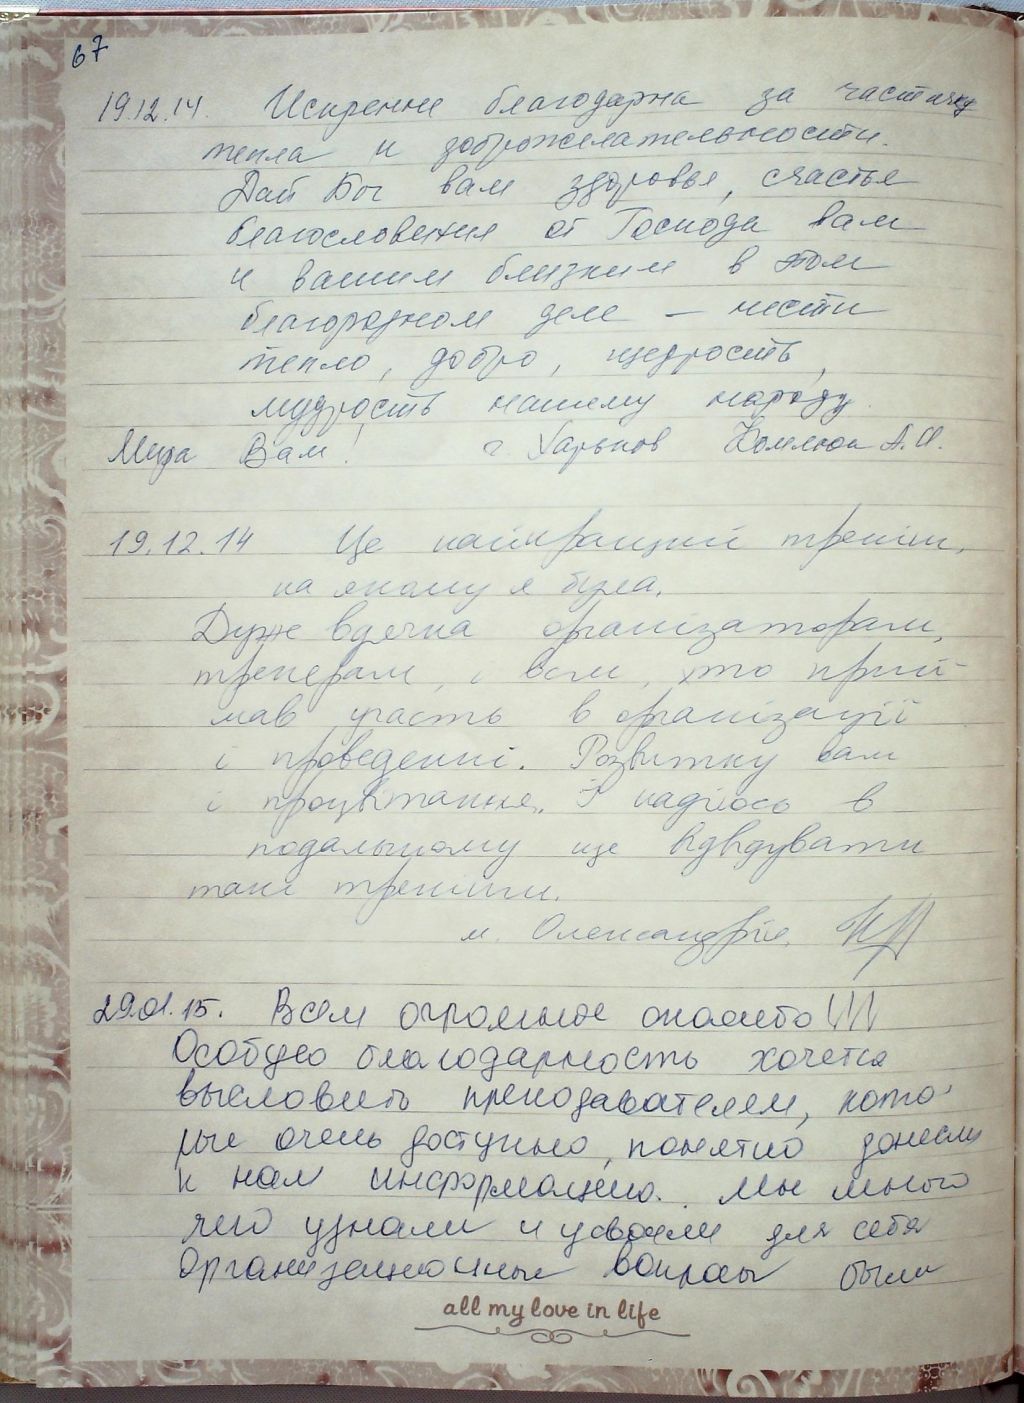 67
19.12.14. Искренне благодарна за частичку
тепла и доброжелательности.
Дай Бог вам здоровья, счастья
благословения от Господа вам
и вашим близким в этом
благородном деле – нести
тепло, добро, щедрость,
мудрость нашему народу.
Мира Вам! г. Харьков А.И.
19.12.14 Це найкращий тренінг,
на якому я була.
Дуже вдячна організаторам,
тренерам, і всім, хто прий-
мав участь в організації
і проведенні. Розвитку вам
і процвітання. І надіюсь в
подальшому ще відвідувати
такі тренінги.
м. Олександрія.
29.01.15. Всем огромное спасибо!!!
Особую благодарность хочется
высловить преподавателям, кото-
рые очень доступно, понятно донесли
к нам информацию. Мы много
чего узнали и усвоили для себя
Организационные вопросы были
all my love in life